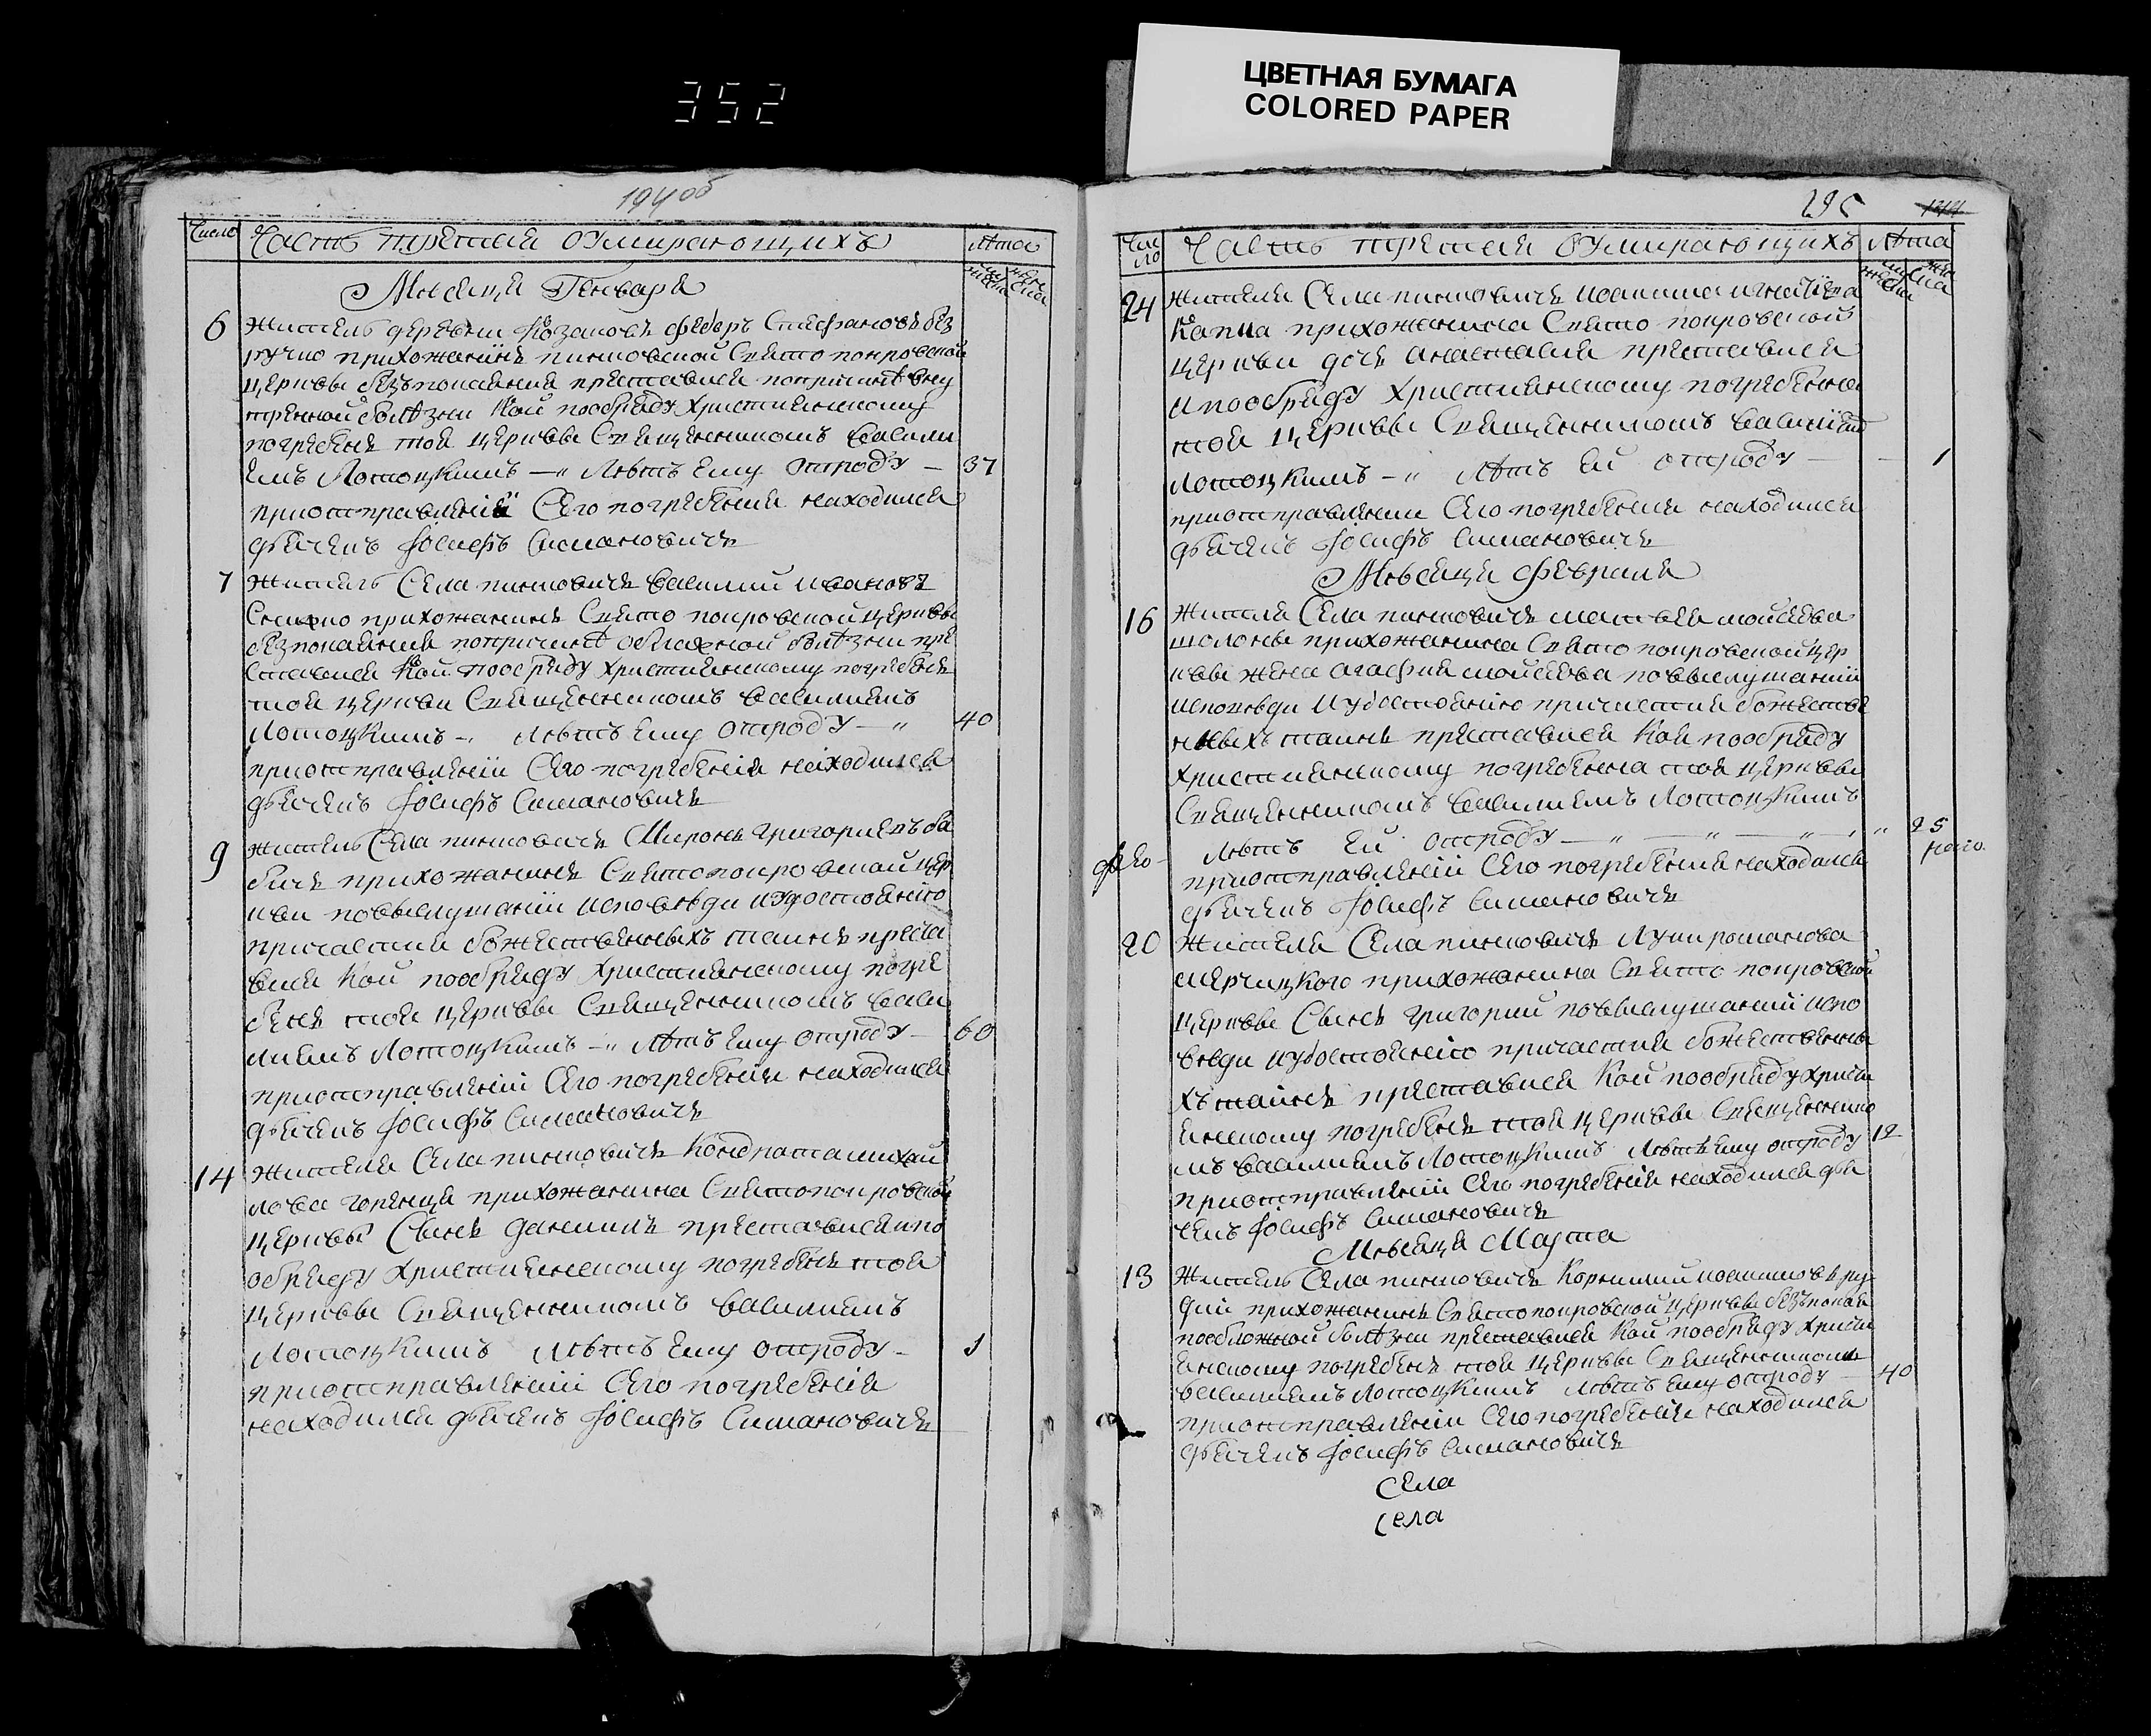 352
ЦВЕТНАЯ БУМАГА
COLORED PAPER
194об
Число Часть третяя оумирающихъ лѣта
Мѣсяца Генваря
6 Житель деревни Козановъ Федоръ Стефановъ без
ручко прихожанинъ пинковской Свято покровской
церквы безъ покаяния преставися попричинѣ вну
тренной болѣзни Кой пообряду Християнскому
погребенъ тоя церквы Священникомъ Васили
емъ Лотоцкимъ —„ лѣтъ ему отроду — 37
приотправлении Сего погребения находился
дьячекъ Іосифъ Симановичъ
7 Житель Села пинковичъ Василий Ивановъ
прихожанинъ Свято покровской церквы
безпокаяния попричинѣ обложной болѣзни пре
ставися Кой пообряду Християнскому погребенъ
тоя церкви Священникомъ Василиемъ
Лотоцкимъ —„ лѣтъ ему отроду —„ 40
приотправлении Сего погребения находился
дьячекъ Іосифъ Симановичъ
9 житель Села пинковичъ Миронъ Григориевъ ба
бичъ прихожанинъ Святопокровской цер
кви повыслушании исповѣди и удостоению
причастия божественныхъ таинъ преста
вися Кой пообряду Християнскому погре
бенъ тоя церквы Священникомъ Васи
лиемъ Лотоцкимъ —„ лѣтъ ему отроду — 60
приотправлении Сего погребения находился
дьячекъ Іосифъ Симановичъ
14 Жителя Села пинковичъ Кондрата михай
лова горенця прихожанина Святопокровской
церквы Сынъ Даниилъ преставися и по
обряду Християнскому погребенъ тоя
церквы Священникомъ Василиемъ
Лотоцкимъ лѣтъ ему отроду — 1
приотправлении Сего погребения
находился дьячекъ Іосифъ Симановичъ
195
Чис
ло Часть третяя оумирающихъ Лѣта
24 жителя Села пинковичъ Иоанина игнатиева
прихожанина Свято покровской
церкви дочъ анастасия преставися
и пообряду Християнскому погребенна
тоя церквы Священникомъ Василием
Лотоцкимъ —„ Лѣтъ ей отроду — 1
приотправлении Сего погребения находился
дьячекъ Іосифъ Симановичъ
Мѣсяца Февраля
16 Жителя Села пинковичъ матвея мойсеева
прихожанина Свято покровской цер
квы жена агафия мойсеева повыслушании
исповѣди и удостоению причастия божестве
нныхъ таинъ преставися Кая пообряду
Християнскому погребенна тоя церквы
Священникомъ Василиемъ Лотоцкимъ
Лѣтъ ей отроду —„—„—„ 25
приотправлении Сего погребения находился
дьячекъ Іосифъ Симановичъ
20 Жителя Села пинковичъ Луки романова
прихожанина Свято покровской
церквы Сынъ григорий повыслушании испо
вѣди и удостоению причастия божественны
хъ таинъ преставися Кой пообряду Христи
янскому погребенъ тоя церквы Священнико
мъ Василиемъ Лотоцкимъ лѣтъ ему отроду 12
приотправлении Сего погребения находился дья
чекъ Іосифъ Симановичъ
Мѣсяца Марта
13 Житель Села пинковичъ Корнилий
прихожанинъ Святопокровской церквы безъ покая
пообложной болѣзни преставися Кой пообряду Христи
янскому погребенъ тоя церквы Священникомъ
Василиемъ Лотоцкимъ лѣтъ ему отроду — 40
приотправлении Сего погребения находился
дьячекъ Іосифъ Симановичъ
Села
Села